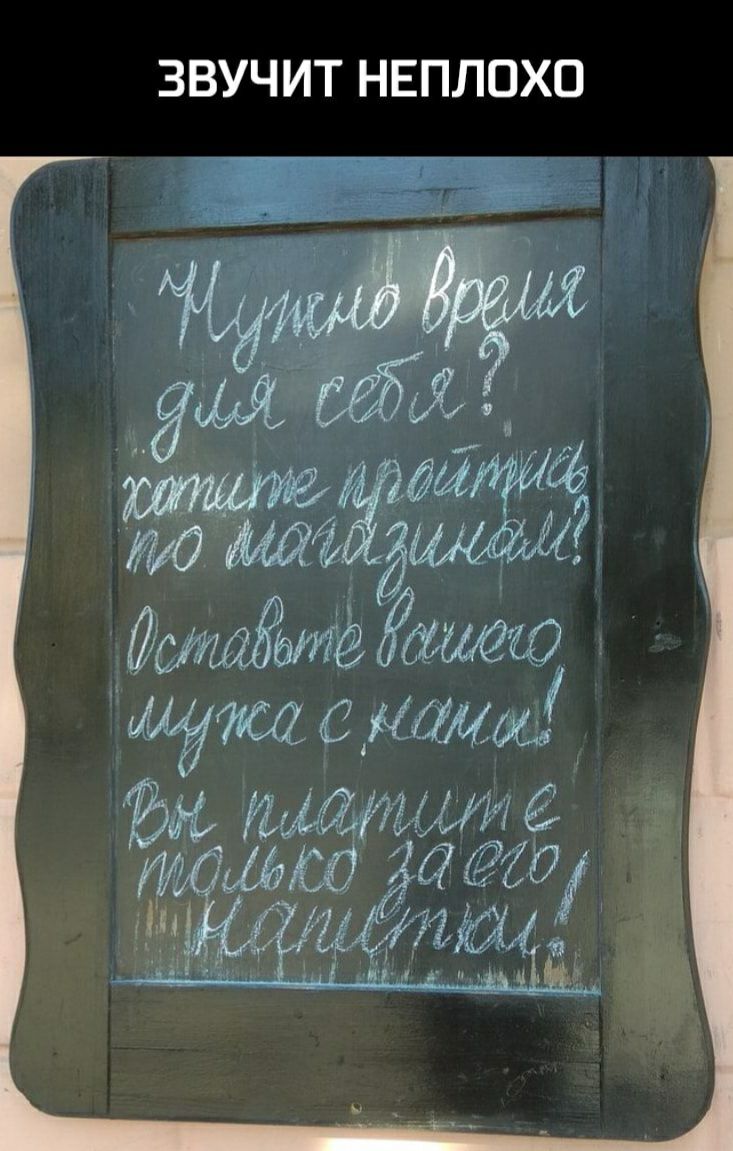 ЗВУЧИТ НЕПЛОХО
Нужно время
для себя?
хотите пройтись
по магазинам?
Оставьте вашего
мужа с нами!
Вы платите
только за его
напитки!